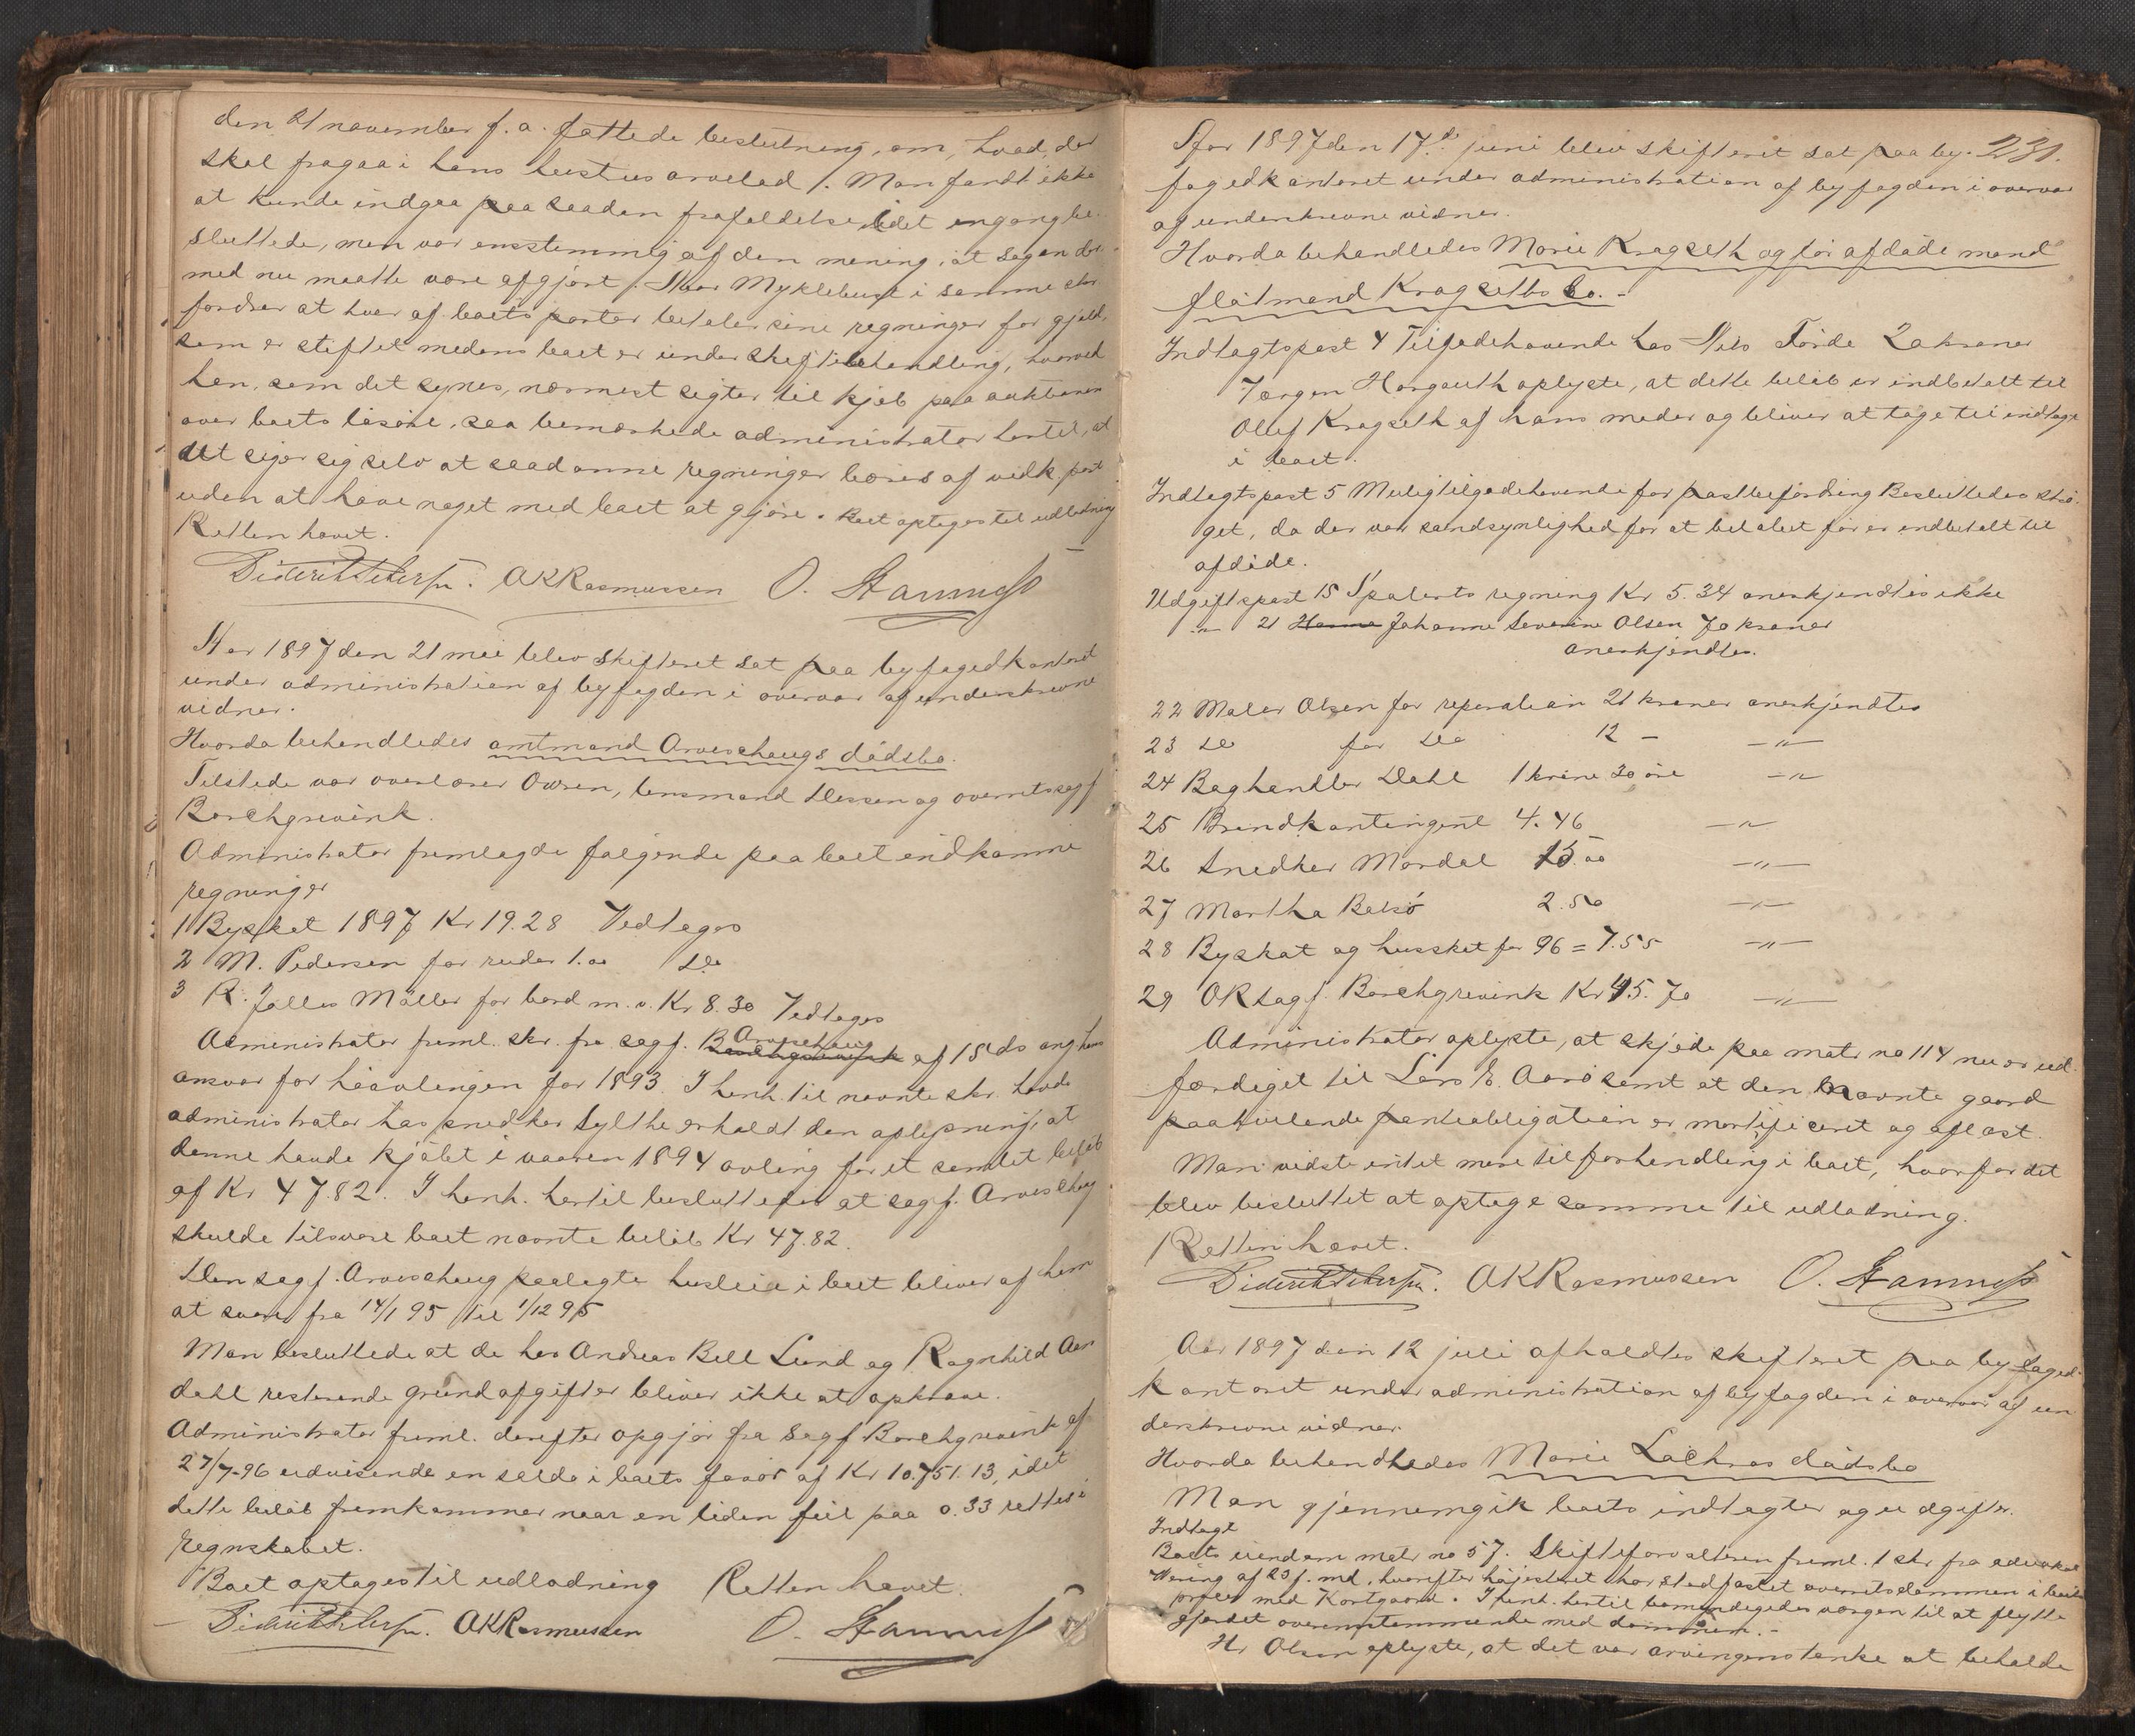 den 21 november f. a. fattede beslutning, om, hvad, der
skal fragaa i hans hustrus arvelod. Man fandt ikke
at kunde indgaa paa saadan frafaldelse, idet engang be-
sluttede, men var enstemmig af den mening, at sagen der-
med nu maatte være afgjort. Naar Myklebust i samme skr
fordrer at hver af boets parter betaler sine regninger for gjæld,
som er stiftet medens boet er under skiftebehandling, hvorved
han, som det synes, nærmest sigter til kjøb paa auktionen
over boets løsøre, saa bemærkede administrator hertil, at
det siger sig selv at saadanne regninger bæres af vedk. part
uden at have noget med boet at gjøre. Boet optages til udlodning
Retten hævet.
AKRasmussen O. Stamnes
Aar 1897 den 21 mai blev skifteret sat paa byfogedkontoret
under administration af byfogden i overvær af underskrevne
vidner.
Hvorda behandledes amtmand Arveschougs dødsbo.
Tilstede var overlærer Owren, lensmand Dessen og overretssagf
Borchgrevink.
Administrator fremlagde følgende paa boet indkomne
regninger
1 Byskat 1897 Kr 19.28 Vedtages
2 M. Pedersen for ruder 1.00 Do
3 R. Jølles Møller for bord m. v. Kr 8.30 Vedtages
Administrator freml. skr. fra sagf. Arveschoug af 18 ds ang hans
ansvar for høavlingen for 1893. I henh. til nævnte skr. havde
administrator hos snedker Sylthe erholdt den oplysning, at
denne havde kjøbt i vaaren 1894 avling for et samlet beløb
af Kr 47.82. I henh. hertil besluttedes at sagf. Arveschoug
skulde tilsvare boet nævnte beløb Kr 47.82.
Den sagf. Arveschoug paalagte husleie i boet bliver af ham
at svare fra 14/1 95 til 1/12 95
Man besluttede at de hos Andreas Bell Lund og Ragnhild Aan
dahl resterende grundafgifter bliver ikke at opkræve.
Administrator freml. derefter opgjør fra sagf Borchgrevink af
27/7-96 udvisende en saldo i boets favør af Kr 10.751.13, idet
dette beløb fremkommer naar en liden feil paa 0.33 rettes i
regnskabet.
Boet optages til udlodning Retten hævet.
AKRasmussen O. Stamnes
231.
Aar 1897 den 17de juni blev skifteret sat paa by-
fogedkontoret under administration af byfogden i overvær
af underskrevne vidner.
Hvorda behandledes Marie Kragseth og før afdøde mand
flåtmand Kragseths bo.
Indtægtspost 4 Tilgodehavende hos Nils Førde 20 kroner
Jørgen Horgauth oplyste, at dette beløb er indbetalt til
Oluf Kragseth af hans moder og bliver at tage til indtægt
i boet.
Indtægtspost 5 Mulig tilgodehavende for postbefordring Besluttedes strø-
get, da der var sandsynlighed for at beløbet før er indbetalt til
afdøde.
Udgiftspost 15 Spalents regning Kr 5.34 anerkjendtes ikke
" 21 Hanna Johanne Severine Olsen 70 kroner
anerkjendtes.
22 Maler Olsen for reparation 21 kroner anerkjendtes
23 Do for Do 12 - - " -
24 Boghandler Dahl 1 krone 20 øre - " -
25 Brandkontingent 4.46 - " -
26 Snedker Mordal 15.00 - " -
27 Martha Bolsø 2.50 - " -
28 Byskat og husskat for 96 = 7.55 - " -
29 ORsagf. Borchgrevink Kr 45.70 - " -
Administrator oplyste, at skjøde paa matr no 114 nu er ud-
færdiget til Lars E. Aarø samt at den nævnte gaard
paahvilende panteobligation er mortificeret og aflæst.
Man vidste intet mere til forhandling i boet, hvorfor det
blev besluttet at optage samme til udlodning.
Retten hævet.
AKRasmussen O. Stamnes
Aar 1897 den 12 juli afholdtes skifteret paa byfoged-
kontoret under administration af byfogden i overvær af un
derskrevne vidner
Hvorda behandledes Marie Lochras dødsbo
Man gjennemgik boets indtægter og udgifter.
Indtægt
Boets eiendom matr no 57. Skifteforvalteren freml. 1 skr fra advokat
Wening af 23 f. md., hvorefter højesteret har stadfæstet overretsdommen i boets
proces med Kortgaard. I henh. hertil bemyndigedes værgen til at flytte
gjerdet overensstemmende med dommen. -
Hr Olsen oplyste, at det var arvingens tanke at beholde